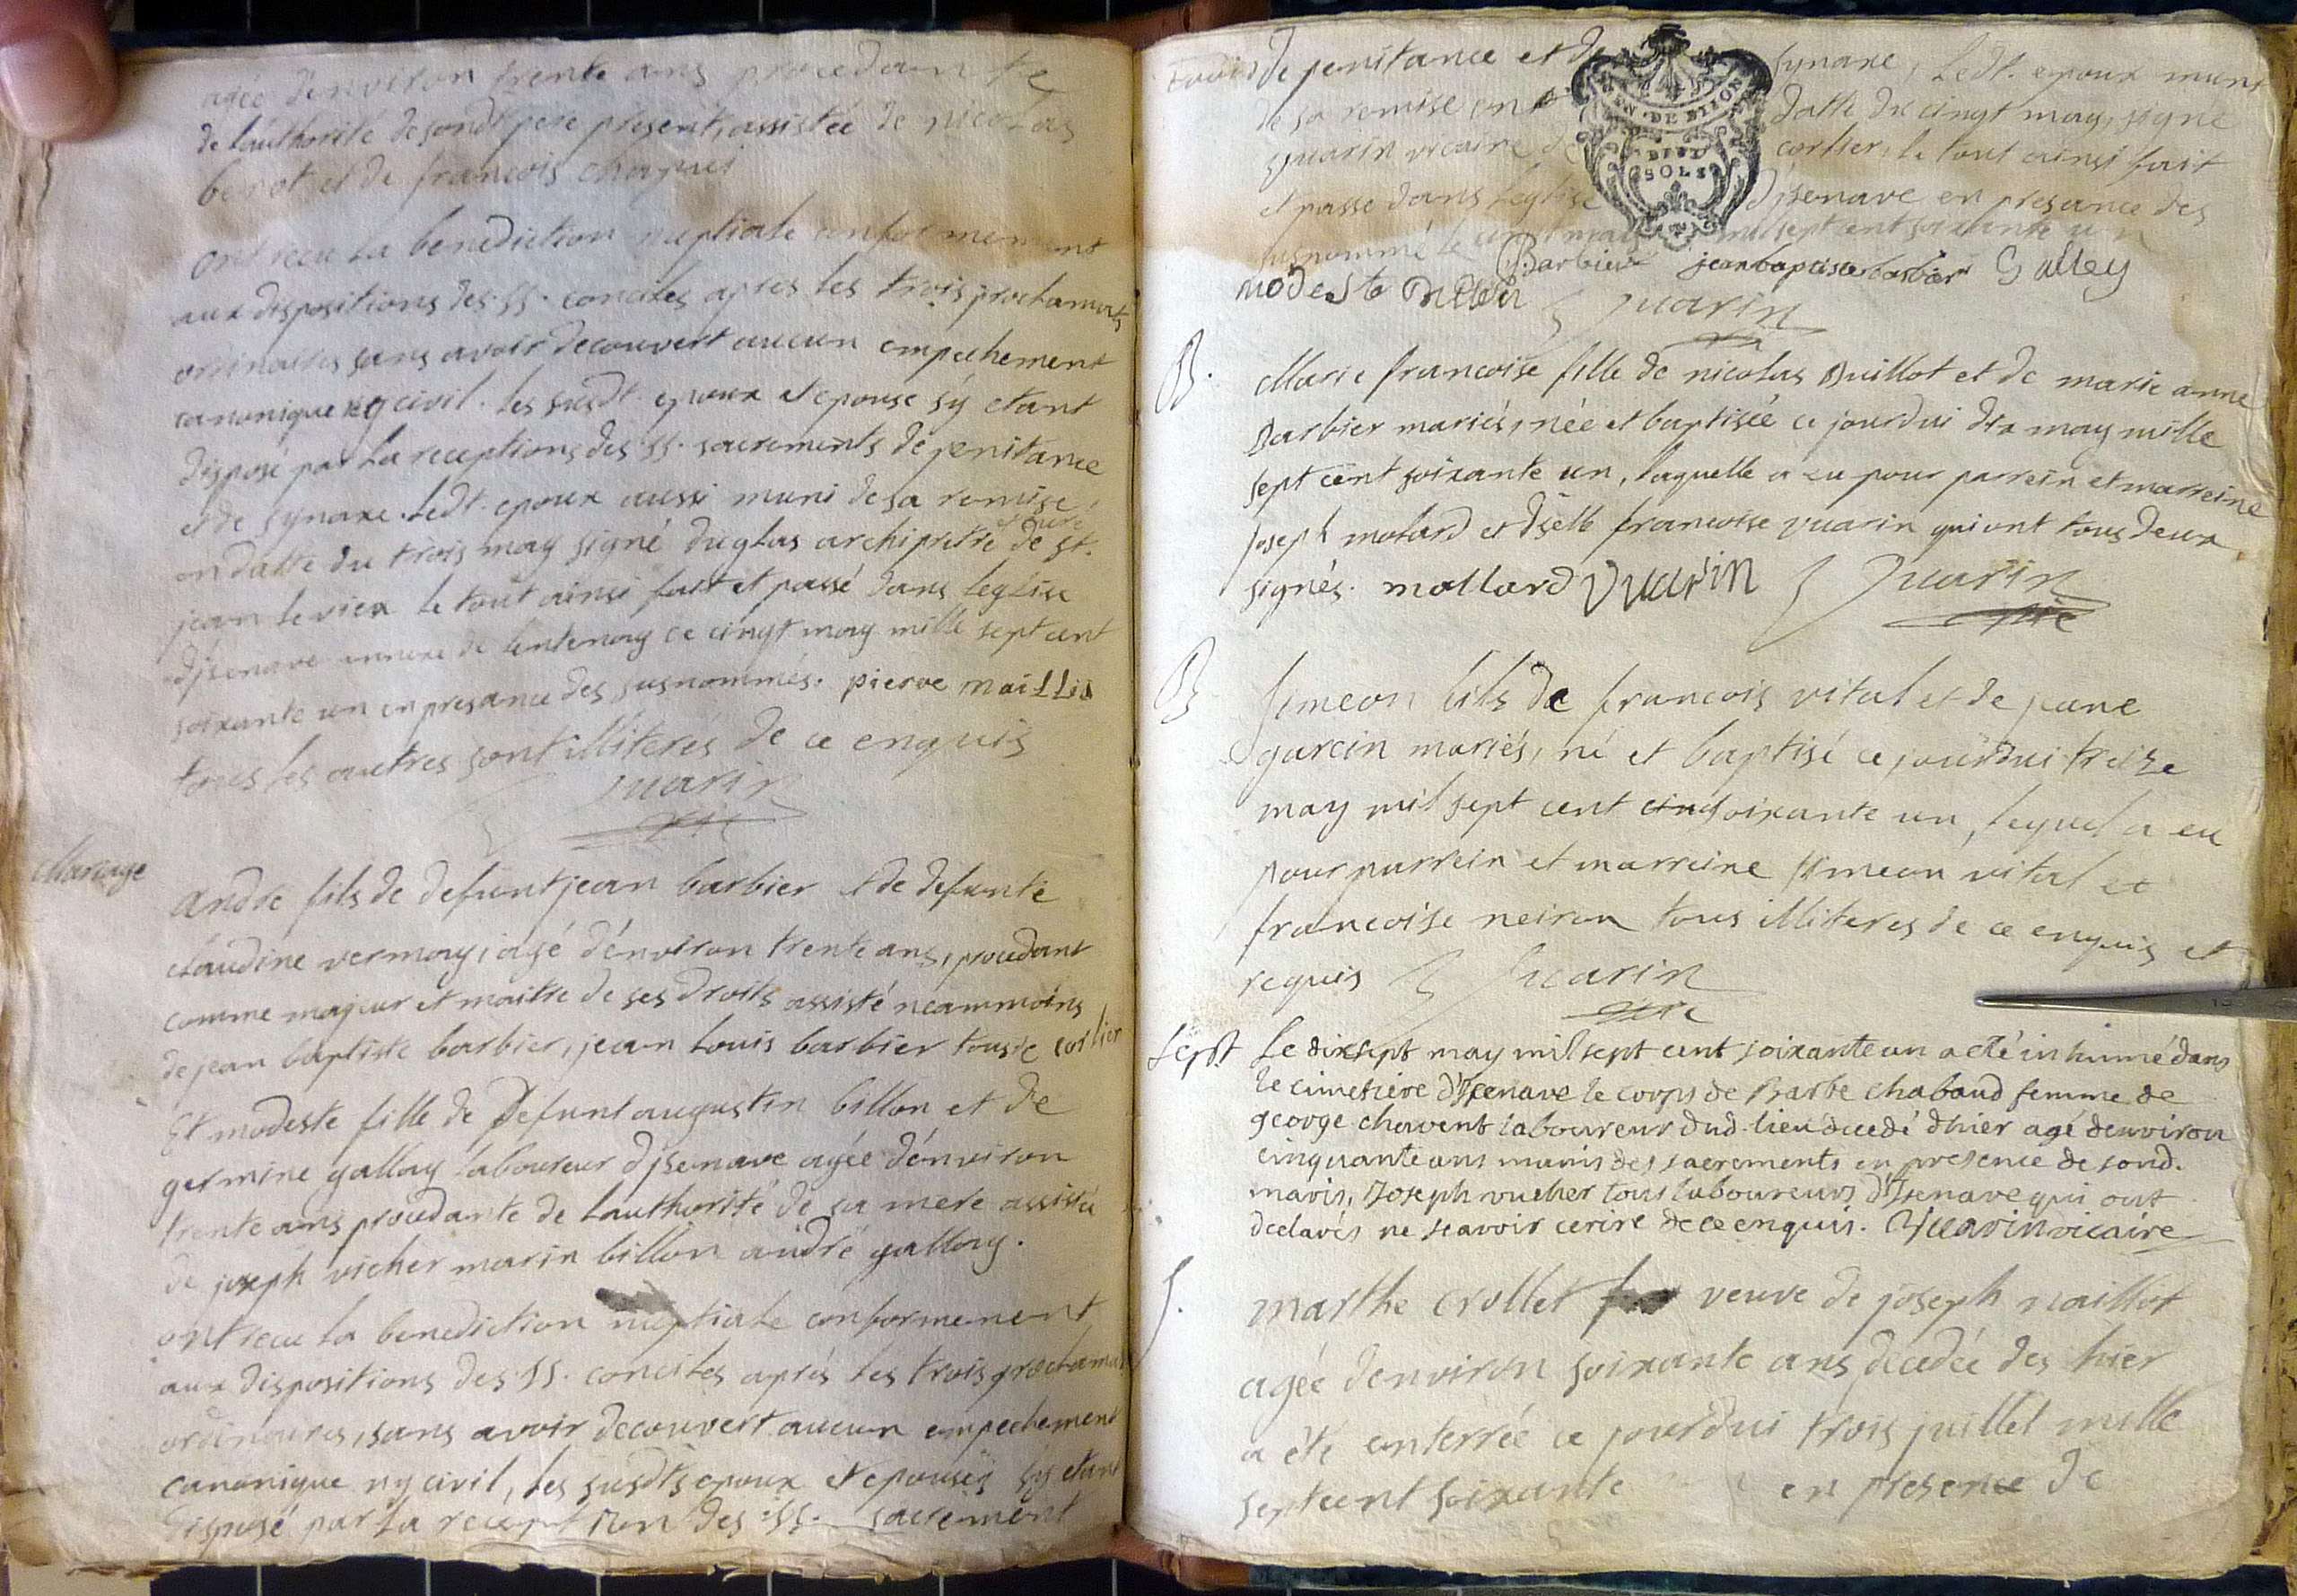 agée d'environ trente ans procedante
de l'authorité de sondt pere présent, assistée de nicolas
benot et de francois chapuis
ont recu la benediction nuptiale conformement
aux dispositions des SS. conciles apres les trois proclamats
ordinaires sans avoir decouvert aucun empechement
canonique ny civil. les susdt. epoux et epouse sÿ etant
disposé par la receptions des SS. sacrements de penitance
et de synaxe. Ledt. epoux aussi muni de sa remise
en datte du trois may signé duglas archipretre et curé de st.
jean le viex le tout ainsi fait et passé dans leglise
djsenave annexe de lentenay ce cinqt may mille sept cent
soixante un en presance des susnommés. pierre maillet
tous les autres sont illiterés de ce enquis
vuarin
vic
Mariage
andré fils de defunt jean barbier et de defunte
claudine vermay, agé d'environ trente ans, procedant
comme majeur et maitre de ses droits assisté neammoins
de jean baptiste barbier, jean Louis barbier tous de corlier
Et modeste fille de defunt augustin billon et de
germine gallay laboureur djsenave agée d'environ
trente ans procedante de lauthorité de sa mere assistée
de joseph vicher marin billon andré gallay.
ont recu la benediction nuptiale conformement
aux dispositions des SS. conciles aprés les trois proclamat
ordinaires, sans avoir decouvert aucun empechement
canonique ny civil, les susdts epoux et epouse sÿ etant
disposé par la reception des SS. sacrement
de penitance et de synaxe, Ledt. epoux muni
de sa remise en datte du cinqt may, signé
vuarin vicaire de corlier, le tout ainsi fait
et passé dans leglise djsenave en presance des
susnommé le cinqt may mil sept cent soixante un
Barbier jean baptiste barbier Galley
modeste vuarin
B. Marie francoise fille de nicolas Buillot et de marie anne
Barbier mariés, née et baptisée ce jourdui dix may mille
sept cent soixante un, laquelle a eu pour parrein et marreine
joseph molard et dselle francoise vuarin qui ont tous deux
signés. mollard Vuarin vuarin
vic
B Simeon fils de francois vital et de jane
garcin mariés, né et baptisé ce jourdui treize
may mil sept cent cinq soixante un, lequel a eu
pour parrein et marreine Simeon vital et
francoise neiron tous illiteres de ce enquis et
requis vuarin
vic
Sept Le dixsept may mil sept cent soixante un a eté inhumé dans
le cimetiere d'Isenave le corps de Barbe chaband femme de
george chavent laboureur dud. lieu decedé d'hier agé denviron
cinquante ans munis des sacrements en presence de sond.
maris, Joseph vucher tous laboureurs d'Isenave qui ont
declarés ne scavoir ecrire de ce enquis. Vuarin vicaire
S. marthe crollet veuve de joseph naillot
agée denviron soixante ans decedée des hier
a été enterrée ce jourdui trois juillet mille
septcent soixante en presence de